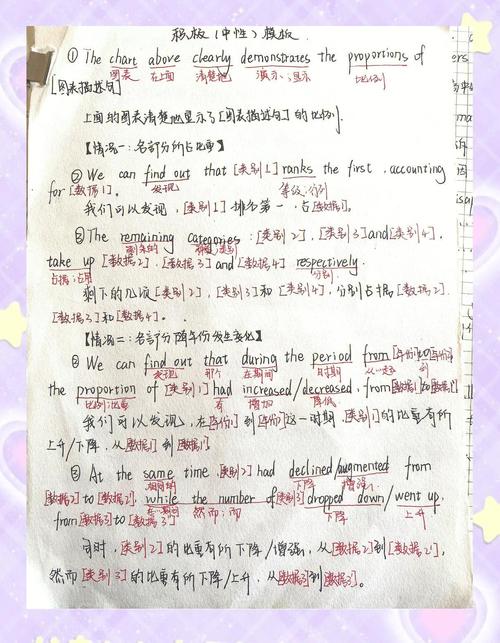 积极（中性）模板
① The chart above clearly demonstrates the proportions of
图表 在上面 清楚地 演示；显示 比例
[图表描述句]
上面的图表清楚地显示了[图表描述句]的比例.
【情况一：各部分所占比重】
② We can find out that [类别1] ranks the first, accounting
发现 等级；分列
for [数据1].
我们可以发现，[类别1]排名第一，占[数据1].
③ The remaining categories：[类别2]，[类别3]and[类别4],
剩余的
take up [数据2]，[数据3]and[数据4] respectively.
占据；占用 分别
剩下的几项[类别2]，[类别3]和[类别4]，分别占据[数据2].
[数据3]和[数据4]。
【情况二：各部分随年份发生变化】
④ We can find out that during the period from [年份]to[年份]
发现 那个 在期间 时期
the proportion of [类别1] had increased/decreased, from[数据1]to[数据1'],
比例；比重 有 增加 降低
我们可以发现，在[年份]到[年份]这一时期，[类别1]的比重有所
上升/下降，从[数据1]到[数据1'].
⑤ At the same time, [类别2] had declined/augmented from
下降 增强
[数据2] to [数据2'], while the number of[类别3]dropped down/went up,
然而；而 下降 上升
from[数据3] to [数据3']
同时，[类别2]的比重有所下降/增强，从[数据2]到[数据2']，
然而[类别3]的比重有所下降/上升，从[数据3]到[数据3']。